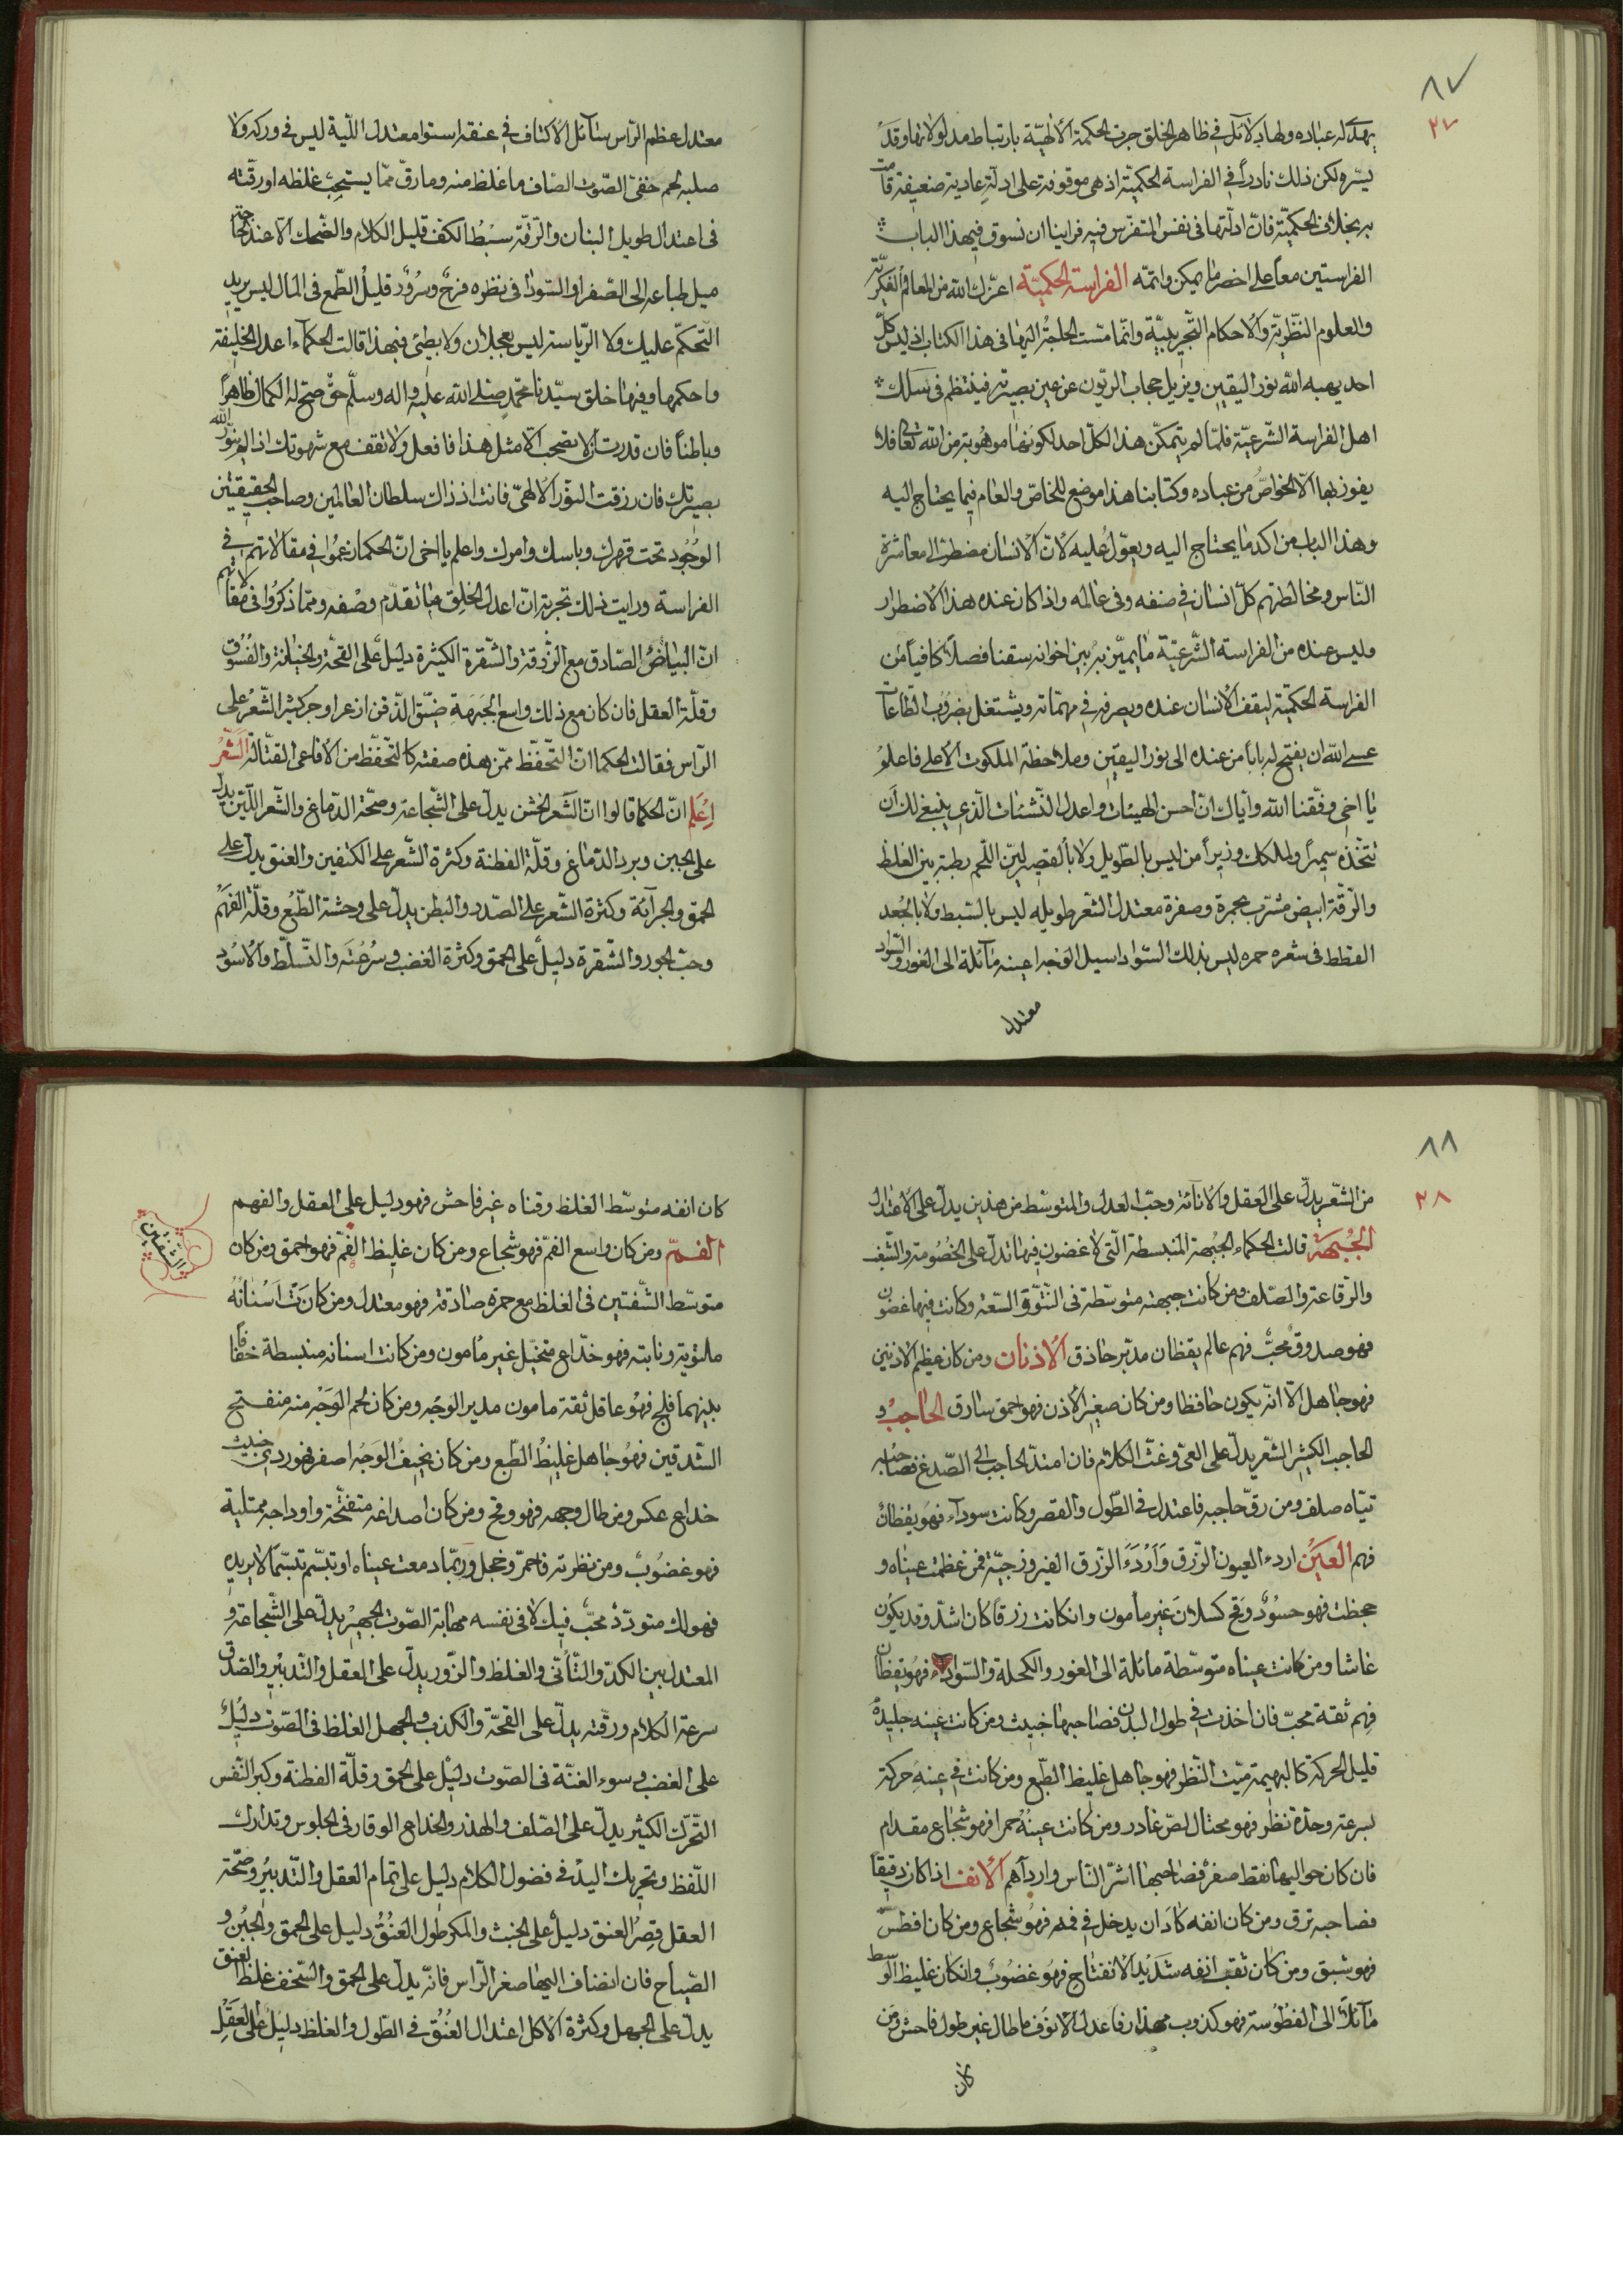 ٨٧
٣٧
يهدى له عباده ولها دلائل فى ظاهر الخلق جرت الحكمة الالهيّة بارتباط مدلولاتها وقد
يسّره لكن ذلك نادراً فى الفراسة الحكميّة اذ هى موقوفة على ادلّة عادية ضعيفة قامت
به بخلاف الحكميّة فانّ ادلّتها فى نفس المتفرّس فيه فراينا ان نسوق فى هذا الباب
الفراستين معاً على اخصر ما يمكن واتمّه الفراسة الحكميّة اعزّك الله من المعالم الفكريّة
والعلوم النظريّة والاحكام التّجريبيّة وانّما مسّت الحاجة اليها فى هذا الكتاب اذ ليس كلّ
احد يهبه الله نور اليقين ويزيل حجاب الريون عن عين بصيرته فينتظم فى سلك
اهل الفراسة الشّرعيّة فلمّا لم يتمكّن هذا لكلّ احد لكونها موهوبة من الله تعالى فلا
يفوز بها الّا الخواصّ من عباده وكتابنا هذا موضع للخاصّ والعام فيما يحتاج اليه
وهذا الباب من اكد ما يحتاج اليه ويعوّل عليه لانّ الانسان مضطرّ الى معاشرة
النّاس ومخالطتهم كلّ انسان فى صنفه وفى عالمه واذا كان عنده هذا الاضطرار
وليس عنده من الفراسة الشّرعيّة ما يميّز به بين اخوانه سقنا فصلاً كافياً من
الفراسة الحكميّة ليقف الانسان عنده ويصرفه فى مهمّاته ويشتغل بضروب الطّاعات
عسى الله ان يفتح له باباً من عنده الى نور اليقين وملاحظة الملكوت الاعلى فاعلم
يا اخى وفّقنا الله وايّاك انّ احسن الهيئات واعدل النّشئات الّذى ينبغى لك ان
تتّخذه سميراً ولملكك وزيراً من ليس بالطّويل ولا بالقصير ليّن اللّحم رطبة بين الغلظ
والرّقّة ابيض مشرّب بحمرة وصفرة معتدل الشّعر طويله ليس بالسّبط ولا بالجعد
القطط فى شعره حمرة ليس بذلك السّواد اسيل الوجه اعينه مائلة الى الغور والسّواد
معتدل
معتدل عظم الرّاس سائل الاكتاف فى عنقه استوا معتدل اللّبة ليس فى وركه ولا
صلبه لحم خفىّ الصّوت الصّاف ما غلظ منه وما رقّ ممّا يستحبّ غلظه او رقّته
فى اعتدال طويل البنان والرّقّة سبط الكفّ قليل الكلام والضّحك الّا عند الحاجة
ميل طباعه الى الصّفرا والسّودا فى نظره فرح وسرور قليل الطّمع فى المال ليس يريد
التّحكّم عليك ولا الرّياسة ليس بعجلان ولا بطئ فبهذا قالت الحكماء اعدل الخليقة
واحكمها وفيها خلق سيّدنا محمّد صلى الله عليه واله وسلّم حتّى صحّ له الكمال ظاهراً
وباطناً فان قدرت الّا تصحب الّا مثل هذا فافعل ولا تقف مع شهوتك اذا لم ينوّر الله
بصيرتك فان رزقت النّور الالهىّ فانت اذ ذاك سلطان العالمين وصاحب الحقيقتين
الوجود تحت قهرك وباسك وامرك واعلم يا اخى انّ الحكما زعموا فى مقالاتهم فى
الفراسة ورايت ذلك تجربة انّ اعدل الخلق ما تقدّم وصفه وممّا ذكروا فى مقالاتهم
انّ البياض الصّادق مع الزّرقة والشّقرة الكثيرة دليل على القحّة والخيانة والفسوق
وقلّة العقل فان كان مع ذلك واسع الجبهة ضيّق الذّقن ازعرا وجر كثير الشّعر على
الرّاس فقالت الحكما انّ التّحفّظ ممّن هذه صفته كالتّحفّظ من الافاعى القتّالة الشّعر
اعلم انّ الحكما قالوا انّ الشّعر الخشن يدلّ على الشّجاعة وصحّة الدّماغ والشّعر اللّيّن يدلّ
على الجبن وبرد الدّماغ وقلّة الفطنة وكثرة الشّعر على الكتفين والعنق يدلّ على
الحمق والجرآئة وكثرة الشّعر على الصّدر والبطن يدلّ على وحشة الطّبع وقلّة الفهم
وحبّ الجور والشّقرة دليل على الحمق وكثرة الغضب وسرعته والتّسلّط والاسود
٨٨
٣٨
من الشّعر يدلّ على العقل والاناة وحبّ العدل والمتوسّط من هذين يدلّ على الاعتدال
الجبهة قالت الحكماء الجبهة المنبسطة الّتى لا غضون فيها تدلّ على الخصومة والشّغب
والرّقاعة والصّلف ومن كانت جبهته متوسّطة فى النّتوّ والسّعة وكانت فيها غضون
فهو صدوق محبّ فهم عالم يقظان مدبّر حاذق الاذنان ومن كان عظيم الاذنين
فهو جاهل الّا انّه يكون حافظا ومن كان صغير الاذن فهو احمق سارق الحاجب و
الحاجب الكثير الشّعر يدلّ على العىّ وغثّ الكلام فان امتدّ الحاجب الى الصّدغ فصاحبه
تيّاه صلف ومن رقّ حاجبه فاعتدل فى الطّول والقصر وكانت سوداء فهو يقظان
فهم العين اردء العيون الزّرق واردء الزّرق الفيروزجيّة فمن عظمت عيناه و
جحظت فهو حسود وقح كسلان غير مأمون وان كانت زرقا كان اشدّ وقد يكون
غاشا ومن كانت عيناه متوسّطة مائلة الى الغور والكحلة والسّواد فهو يقظان
فهم ثقة محبّ فان اخذت فى طول البدن فصاحبها خبيث ومن كانت عينه جليدة
قليل الحركة كالبهيمة ميّت النّظر فهو جاهل غليظ الطّبع ومن كانت فى عينه حركة
بسرعة وحدّة نظر فهو محتال لصّ غادر ومن كانت عينه حمرا فهو شجاع مقدام
فان كان حواليها نقط صفر فصاحبها اشرّ النّاس وارداهم الانف اذا كان دقيقاً
فصاحبه نزق ومن كان انفه كاد ان يدخل فى فمه فهو شجاع ومن كان افطس
فهو شبق ومن كان ثقب انفه شديد الانفتاح فهو غضوب وان كان غليظ الوسط
مائلاً الى الفطوسة فهو كذوب مهذار فاعدل الانوف ما طال غير طول فاحش ومن
كان
كان انفه متوسّط الغلظ وقناه غير فاحش فهو دليل على العقل والفهم
الفمّ ومن كان واسع الفمّ فهو شجاع ومن كان غليظ الفمّ فهو احمق ومن كان
متوسّط الشّفتين فى الغلظ مع حمرة صادقة فهو معتدل ومن كانت اسنانه
ملتوية ونابتة فهو خدّاع متحيّل غير مامون ومن كانت اسنانه منبسطة خفافاً
بينهما فلج فهو عاقل ثقة مامون مدبر الوجه ومن كان لحم الوجه منه منفتح
الشّدقين فهو جاهل غليظ الطّبع ومن كان نحيف الوجه اصفر فهو ردىّ خبيث
خداع عكس ومن طال وجهه فهو وقح ومن كان اصداغه متفتّحة واوداجه ممتلية
فهو غضوب ومن نظرته فاحمرّ وخجل وربّما دمعت عيناه او تبسّم تبسّما لا يريده
فهو لك متودّد محبّ فيك لا فى نفسه مهابة الصّوت الجهير يدلّ على الشّجاعة و
المعتدل بين الكدّ والتّأنّى والغلظ والزّور يدلّ على العقل والتّدبير والصّدق
سرعة الكلام ورقّته يدلّ على القحّة والكذب والجهل الغلظ فى الصّوت دليل
على الغضب وسوء الغنّة فى الصّوت دليل على الحمق وقلّة الفطنة وكبر النّفس
التّحرّك الكثير يدلّ على الصّلف والهذر والخداع الوقار فى الجلوس وتدارك
اللّفظ وتحريك اليد فى فضول الكلام دليل على تمام العقل والتّدبير وصحّة
العقل قصر العنق دليل على الخبث والمكر طول العنق دليل على الحمق والجبن و
الصّياح فان انضاف اليها صغر الرّاس فانّه يدلّ على الحمق والسّخف غلظ العنق
يدلّ على الجهل وكثرة الاكل اعتدال العنق فى الطّول والغلظ دليل على العقل